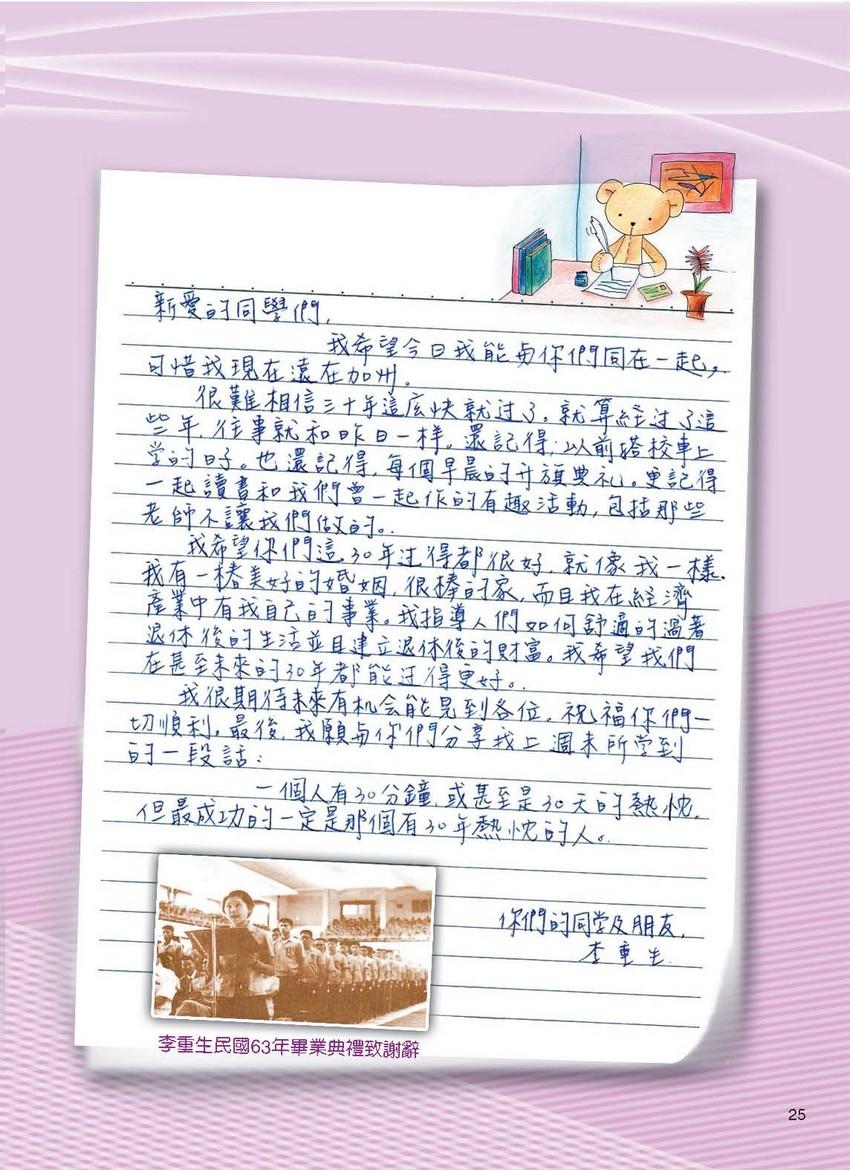 新愛的同學們,
我希望今日我能與你們同在一起,
可惜我現在遠在加州。
很難相信三十年這庅快就过了。就算経过了這
些年,往事就和昨日一样。還記得,以前搭校車上
学的日子。也還記得,每個早晨的升旗典礼。更記得
一起讀書和我們曾一起作的有趣活動,包括那些
老師不讓我們做的。
我希望你們這30年过得都很好,就像我一樣.
我有一樁美好的婚姻,很棒的家,而且我在経濟
產業中有我自己的事業。我指導人們如何舒適的過著
退休後的生活並且建立退休後的財富。我希望我們
在甚至未來的30年都能过得更好。
我很期待未來有机会能見到各位。祝福你們一
切順利。最後,我願与你們分享我上週末所学到
的一段話:
一個人有30分鐘,或甚至是30天的熱忱,
但最成功的一定是那個有30年熱忱的人。
你們的同学及朋友,
李重生
李重生民國63年畢業典禮致謝辭
25